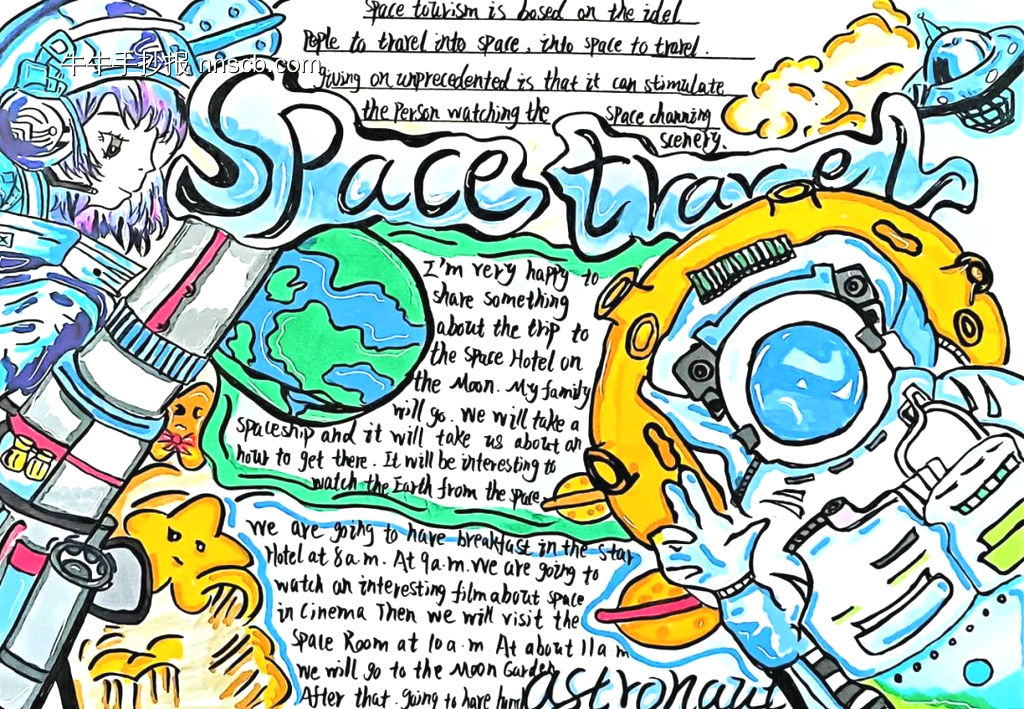 Space tourism is bosed on the idel
Peple to travel into space, into space to travel.
牛牛手抄报 nnscb.com
giving on unprecedented is that it can stimulate
the Person watching the space channing
scenery.
Space travel
I'm very happy to
share something
about the trip to
the space Hotel on
the Moon. My family
will go. We will take a
spaceship and it will take us about an
hour to get there. It will be interesting to
watch the Earth from the space
We are going to have breakfast in the star
Hotel at 8 a.m. At 9 a.m. we are going to
watch an interesting film about space
in Cinema Then we will visit the
space Room at 10 a.m. At about 11 a.m
we will go to the Moon Garden
After that. going to have
astronaut